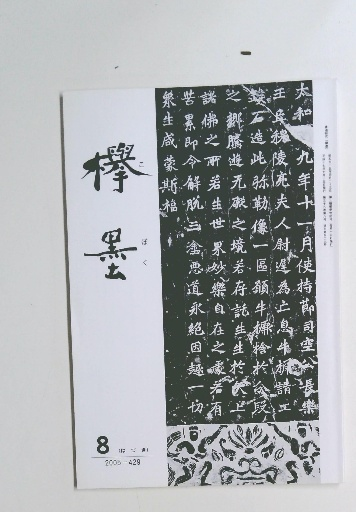 太和十九年十一月使持節司空公長樂
王丘穆陵亮夫人尉遲為亡息牛橛請工
鏤石造此弥勒像一區願牛橛捨於分段
之鄉騰遊无礙之境若存託生生於天上
諸佛之所若生世界妙樂自在之處若有
苦累即令解脫三塗惡道永絕因趣一切
衆生咸蒙斯福
欅墨
ぼく
8
2005 429